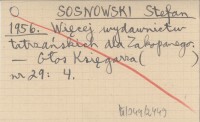 SOSNOWSKI Stefan
1956. Więcej wydawnictw
tatrzańskich dla Zakopanego.
— Głos Księgarza ( )
nr 29: 4.